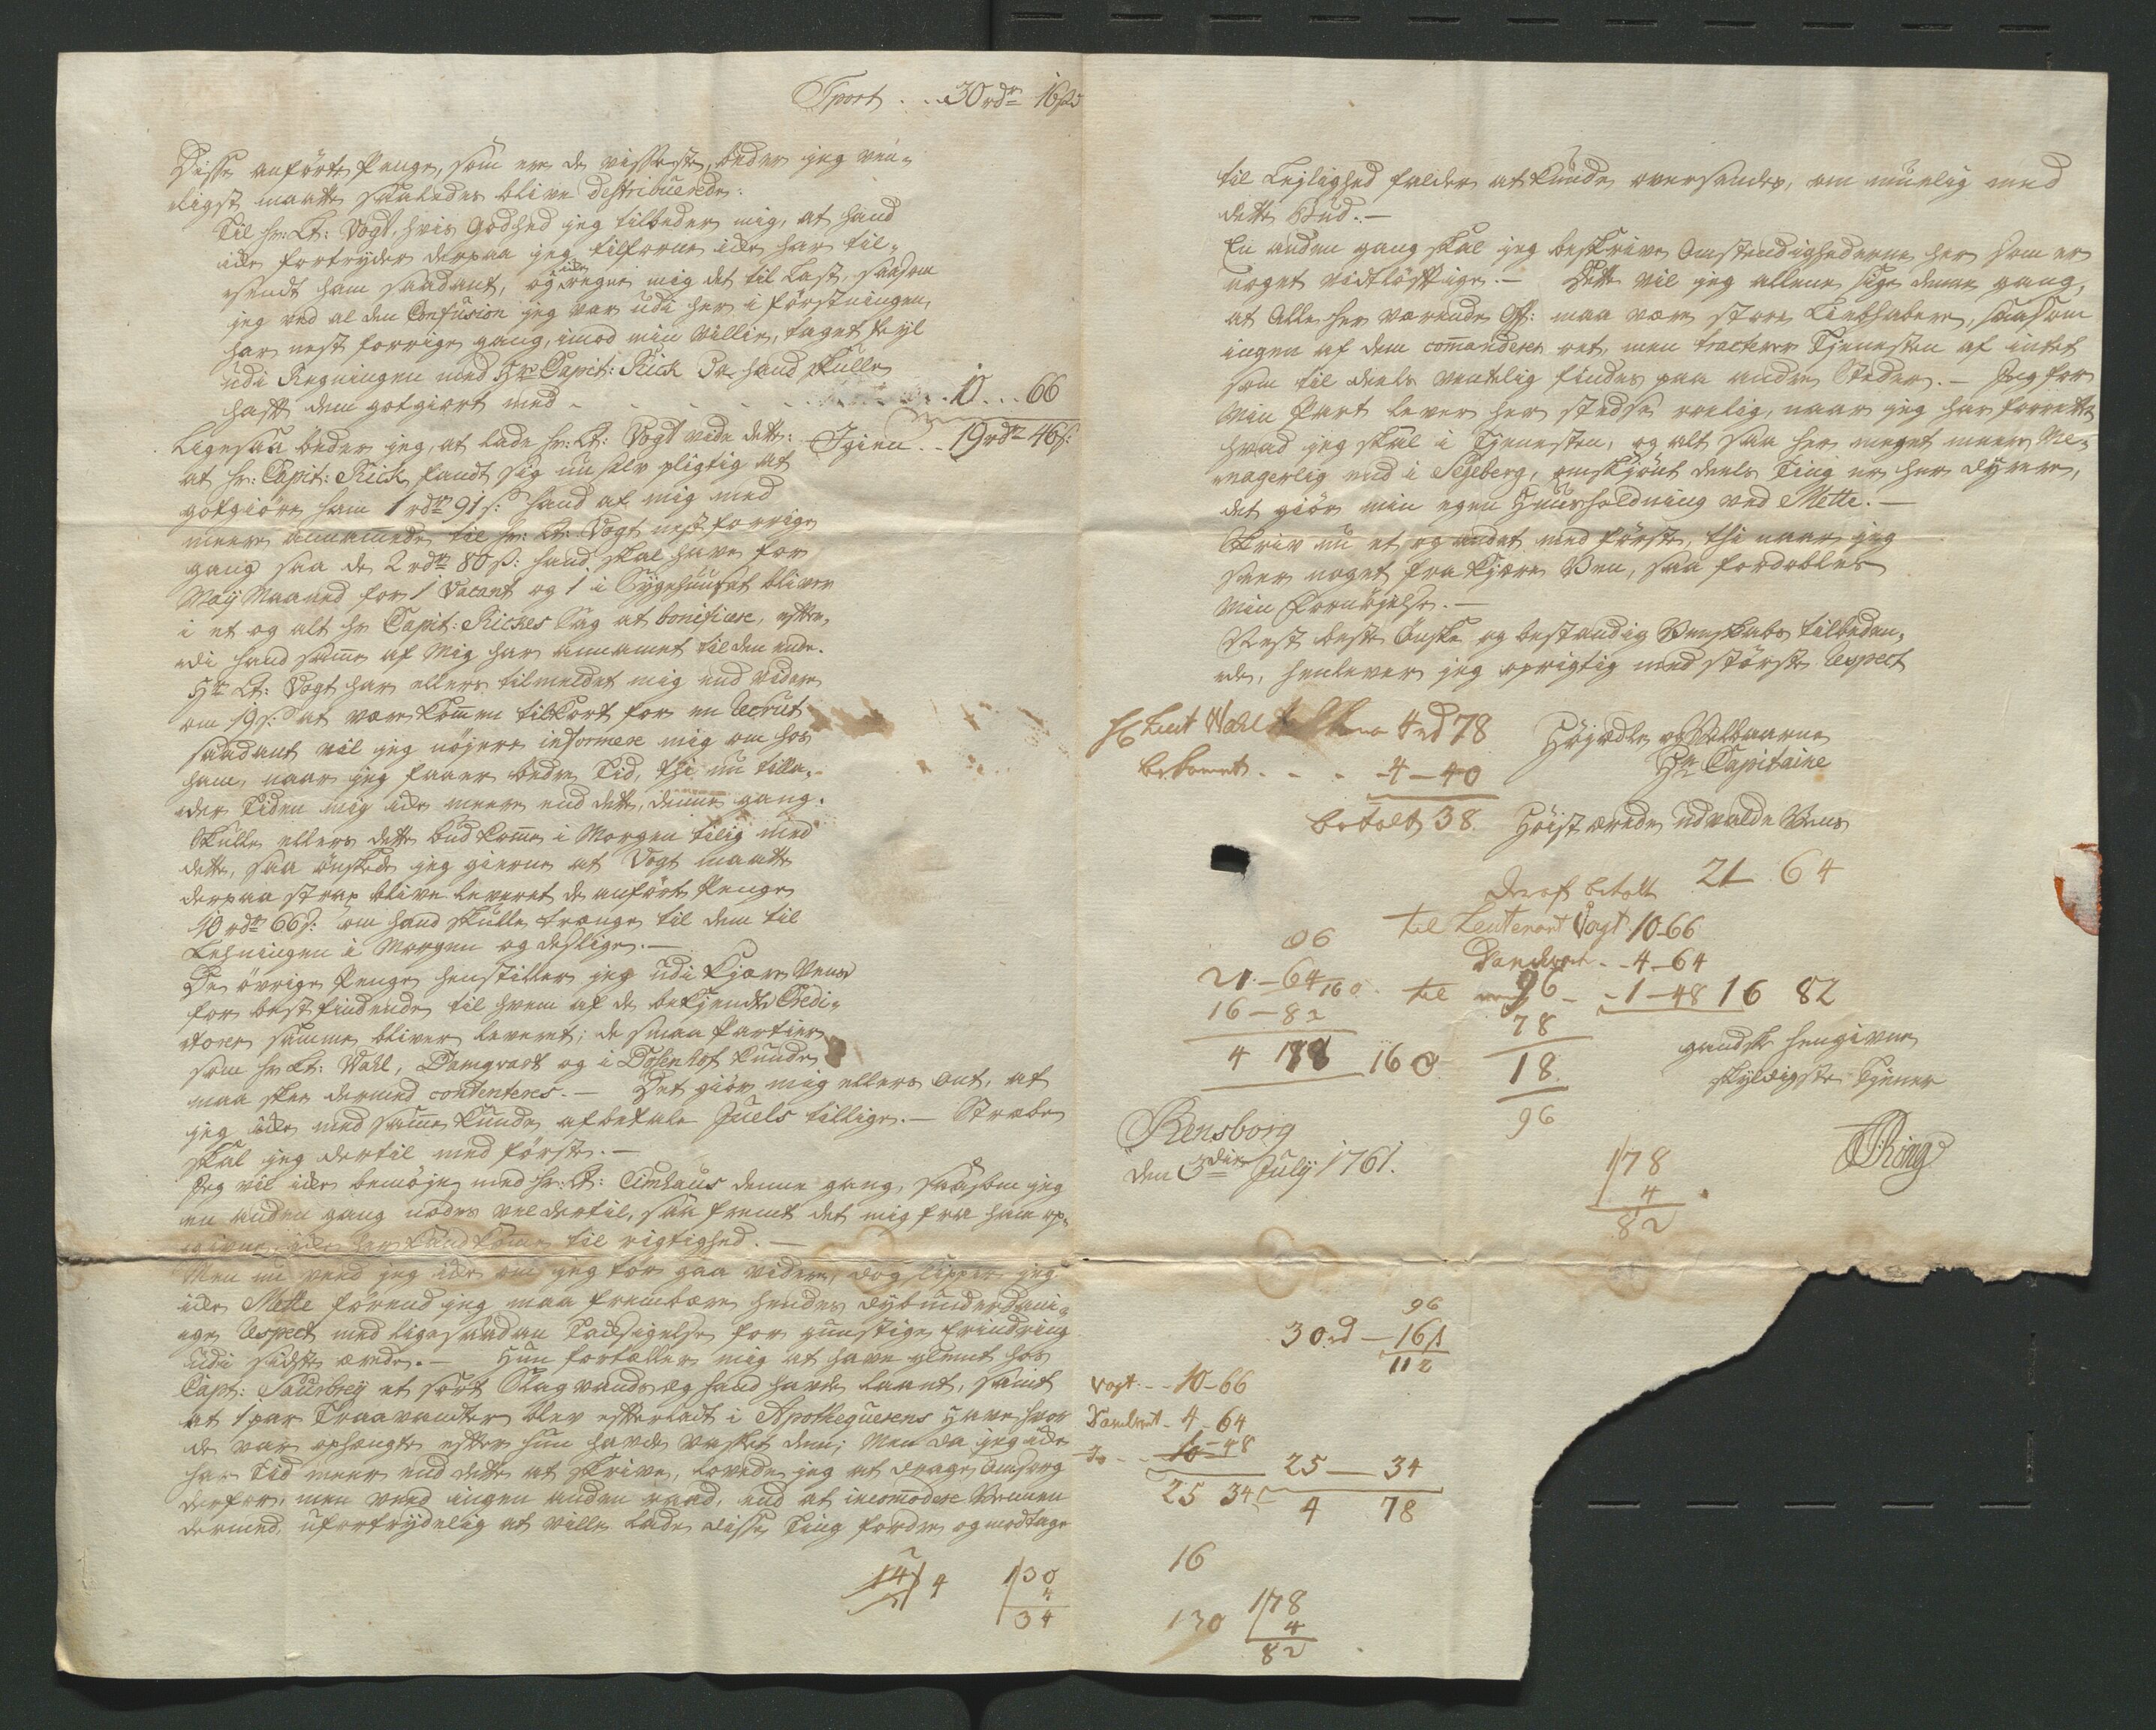 Tport . . 30 rdr 16 ß
Disse anförte Penge, som ere de visseste, beder jeg ven-
ligst maatte saaledes blive destribuerede:
Til hr: Lt: Vogt, hvis Godhed jeg tilbeder mig, at hand
icke fortryder derpaa jeg tilforne icke har til-
sendt ham saadant, og icke regne mig det til Last, saasom
jeg ved al den Confusion jeg var udi her i förstningen,
har nest forrige gang, imod min Villie, taget feyl
udi Regningen med Hr Capit: Rick da hand skulle
haft dem gotgiort med - - - - - 10 . . . 66
Ligesaa beder jeg, at lade hr: Lt: Vogt vide dette: Igien . . 19 rdr 46 ß:
at hr: Capit: Rick fandt sig nu selv pligtig at
gotgiöre ham 1 rdr 91 ß: hand af mig med
meere annammede til hr: Lt: Vogt nest forrige
gang saa de 2 rdr 80 ß: hand skal have for
Maij Maaned for 1 Vacant og 1 i Sygehuuset bliver
i et og alt hr Capit: Rickes Sag at bonificere, efter-
di hand samme af Mig har annamet til den ende.
Hr Lt: Vogt har ellers tilmeldet mig end videre
om 19 ß: at være kommen tilkort for en Recrut
saadant vil jeg nöjere informere mig om hos
ham, naar jeg faaer bedre Tid, thi nu tilla-
der Tiden mig icke meere end dette, denne gang.
Skulle ellers dette bud komme i Morgen tilig med
dette, saa önskede jeg gierne at Vogt maatte
derpaa strax blive leveret de anförte Penge
10 rdr 66 ß: om hand skulle trænge til dem til
Lehningen i Morgen og deslige. —
De övrige Penge henstiller jeg udi Kjære Vens
for best findende til hvem af de bekjendte Credi-
torer samme bliver leveret; de smaa Partier
som hr Lt: Wahl, Damgvart og i Posenhof kunde
maa skee dermed contenteres. — Det giör mig ellers ont, at
jeg icke med samme kunde afbetale Juels tillige. — Stræbe
skal jeg dertil med förste. —
Jeg vil icke bemöje med hr: Lt: Cimhaus denne gang, saasom jeg
en anden gang nödes vel dertil, saa fremt det mig fra ham op-
givne icke her kand komme til rigtighed. —
Men nu veed jeg icke om jeg tör gaa videre, dog slipper jeg
icke Mette förend jeg maa frembære hendes dybunderdani-
ge Respect med ligesaadan Tacksigelse for gunstige Erindring
udi sidste ærede. — Hun fortæller mig at have glemt hos
Capt: Saurbreÿ et sort hand havde laant, samt
at 1 par Traavanter blev efterladt i Apothequerens Have, hvor
de var ophængte efter hun havde vasket dem; Men da jeg icke
har Tid meer end dette at skrive, lovede jeg at drage Omsorg
derfor, men veed ingen anden raad, end at incommodere Vennen
dermed, ufortrydelig at ville lade disse Ting fordre og modtage
14 4
130
4
34
til Lejlighed falder at kunde oversendes, om muelig med
dette Bud. —
En anden gang skal jeg beskrive Omstendighederne her som er
noget vidtlöftige. — Dette vil jeg allene sige denne gang,
at Alle her værende Off: maa være store Liebhabere, saasom
ingen af dem commanderer ret, men tracterer Tjenesten af intet
som til deels ventelig findes paa andre Steder. — Jeg for
Min Part lever her stedse roelig, naar jeg har forrettet
hvad jeg skal i Tjenesten, og alt saa her meget meer Me-
nagerlig end i Segeberg, omskjönt deels Ting er her dyrere,
det giör min egen Huusholdning ved Mette. —
Skriv nu et og andet med förste, thi naar jeg
seer noget fra Kjære Ven, saa fordobles
Min Fornöjelse. —
Nest beste Önske og bestandig Venskabs tilbeden-
de, henlever jeg oprigtig med störste Respect
Hr Leut Wahl 4 rd 78
bekomet . . . 4 — 40
betalt 38.
Höjædle og Velbaarne
Hr Capitaine
Höist ærede udvalde Vens
Deraf betalt 21 64
til Leutenant Vogt 10-66
Damkvart - - 4-64
til - - 1 - 48 16 82
96
21 - 64 160
16 - 82
4 78 160
96
78
18
96
gandske hengivne
skyldigste Tjener
Rensborg
den 3die Julij 1761.
Ring
178
4
82
96
30 rd — 16 ß
112
Vogt - - 10-66
Damkvrt - 4-64
10-48
25 34
25 — 34
4 78
16
130
178
4
82